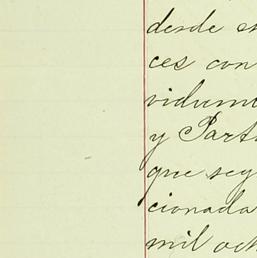 desde
ces con
y Part
que seg
cionada
mil och